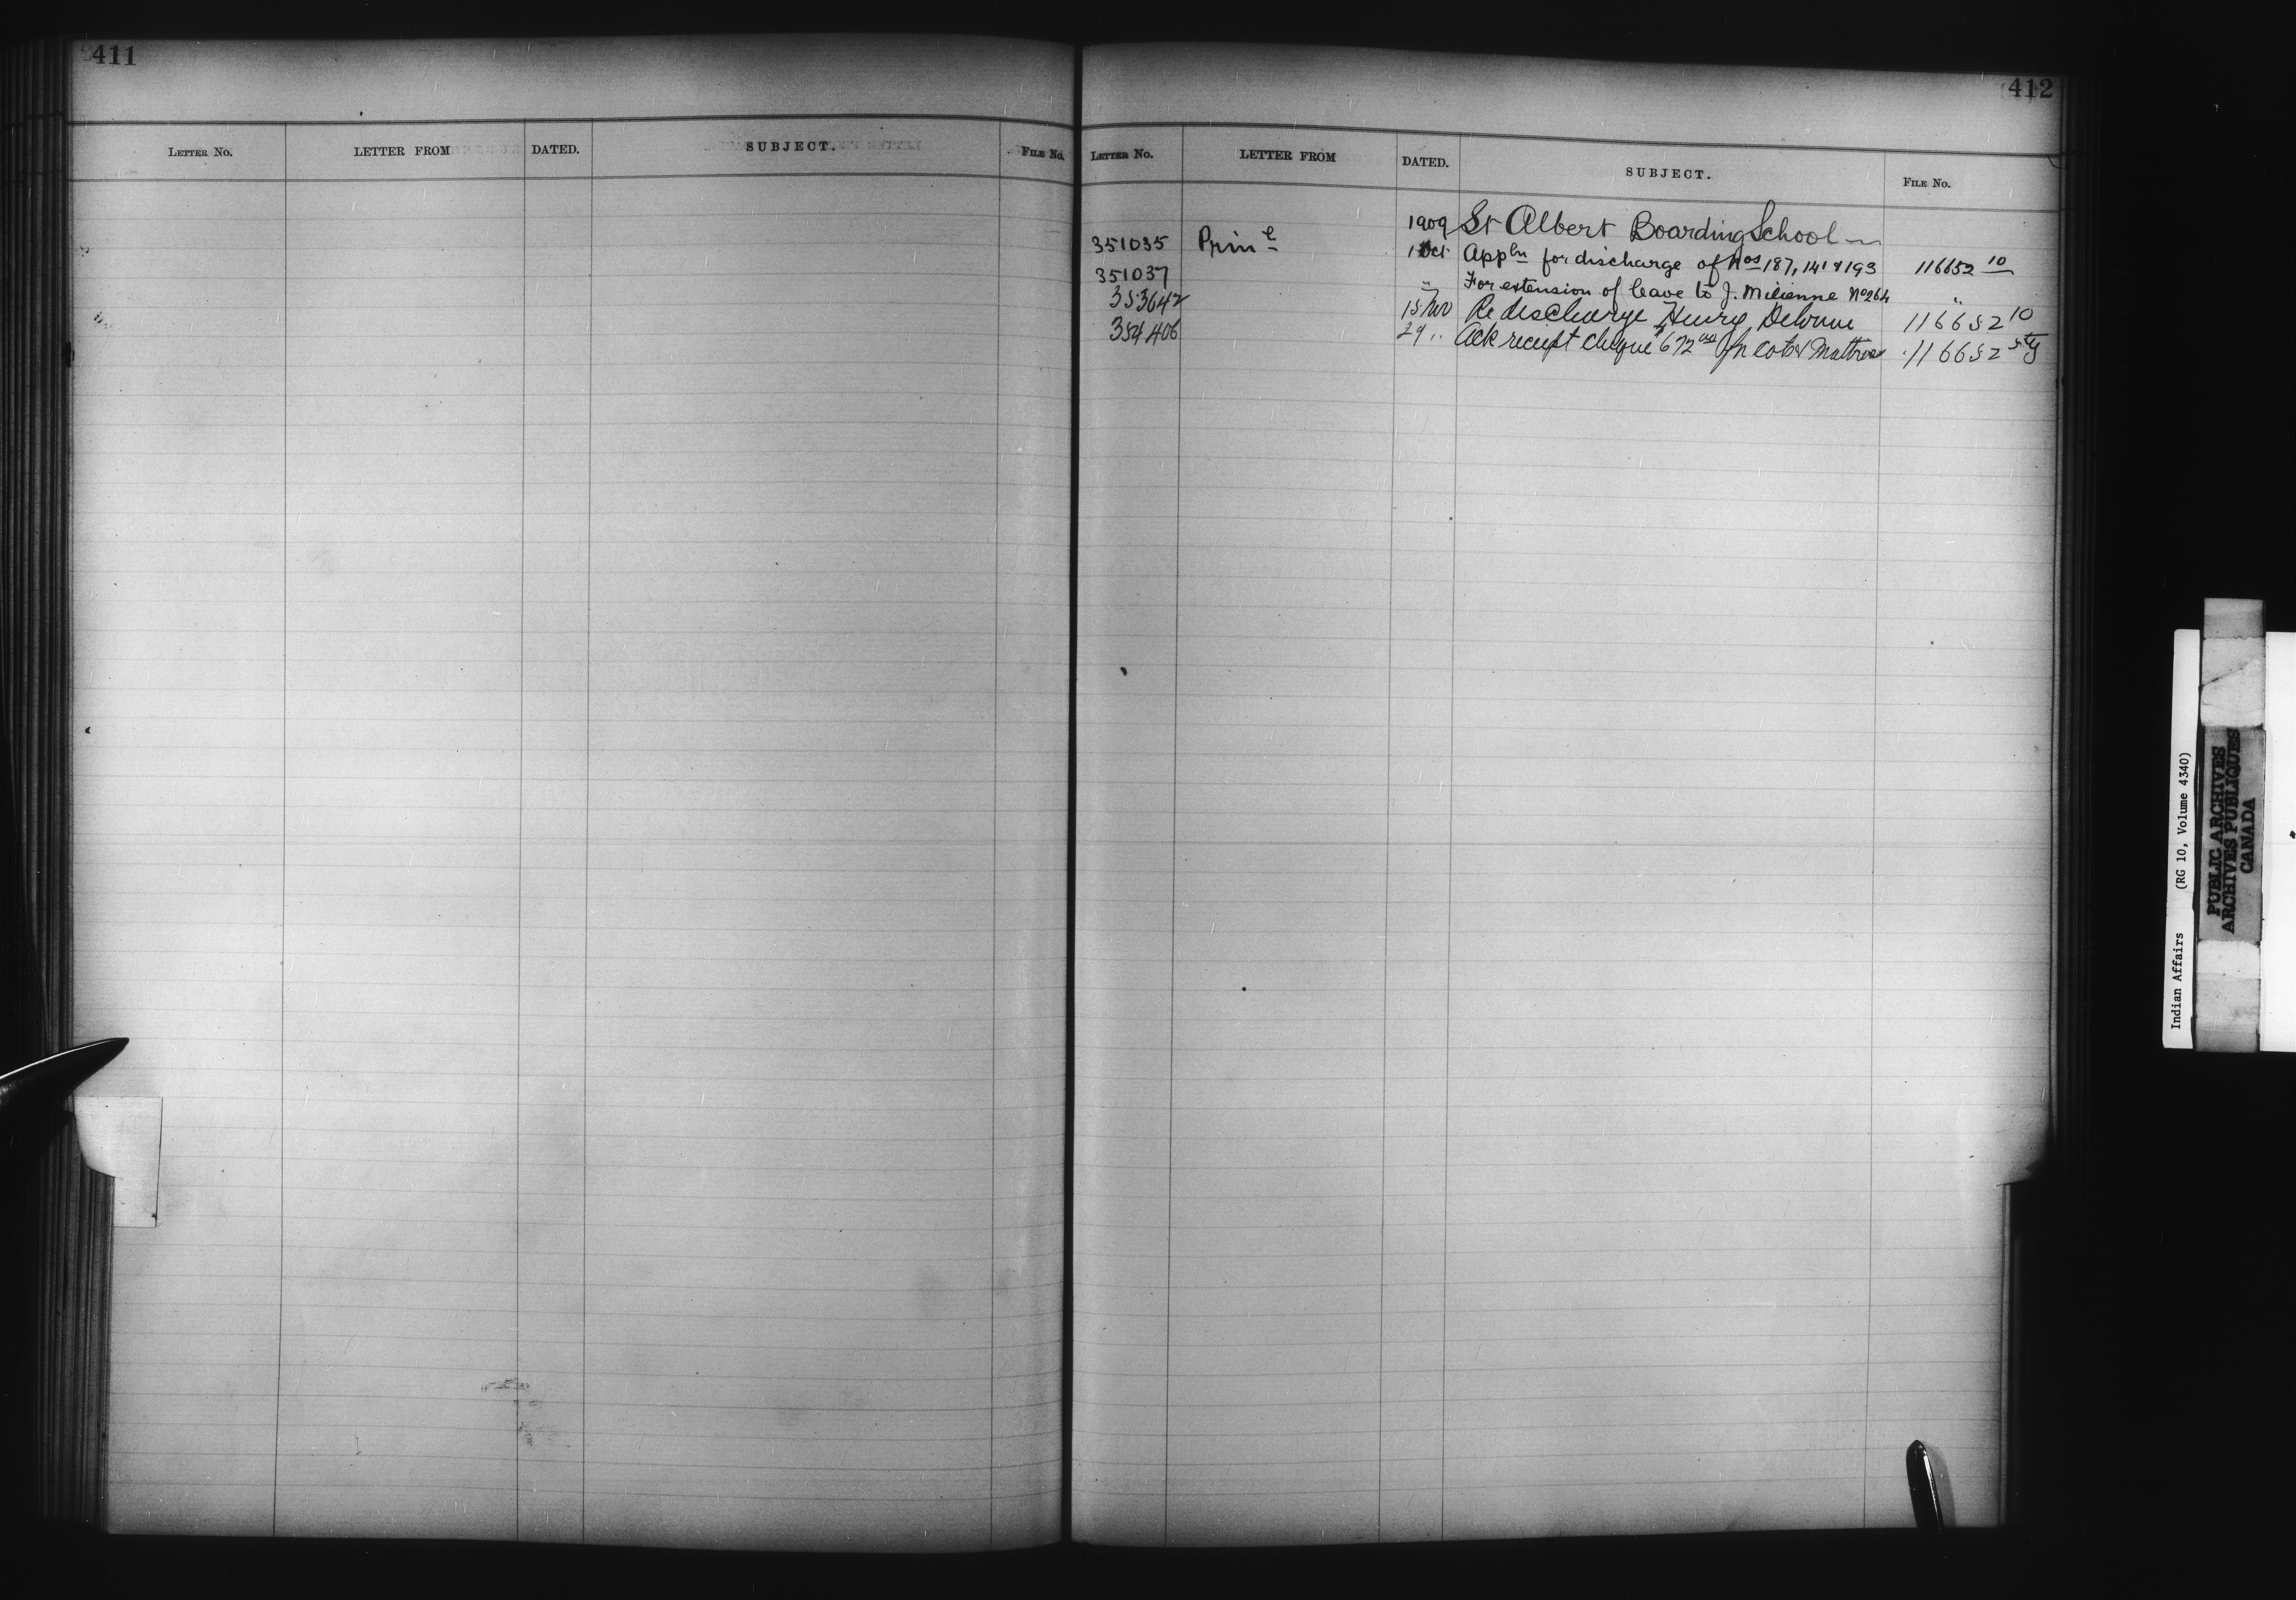 411
LETTER NO. LETTER FROM DATED. SUBJECT. FILE NO.
412
LETTER NO. LETTER FROM DATED. SUBJECT. FILE NO.
1909 St Albert Boarding School
351035 Prin l 1 Oct Appln for discharge of Nos 187, 141 & 193 116652 10
351037 " For extension of leave to J. Milienne No 264 "
353642 15 Nov Re discharge Henry 116652 10
354406 29 " Ack receipt cheque 672 for Cots & Mattress 116652
Indian Affairs (RG 10, Volume 4340)
PUBLIC ARCHIVES
ARCHIVES PUBLIQUES
CANADA